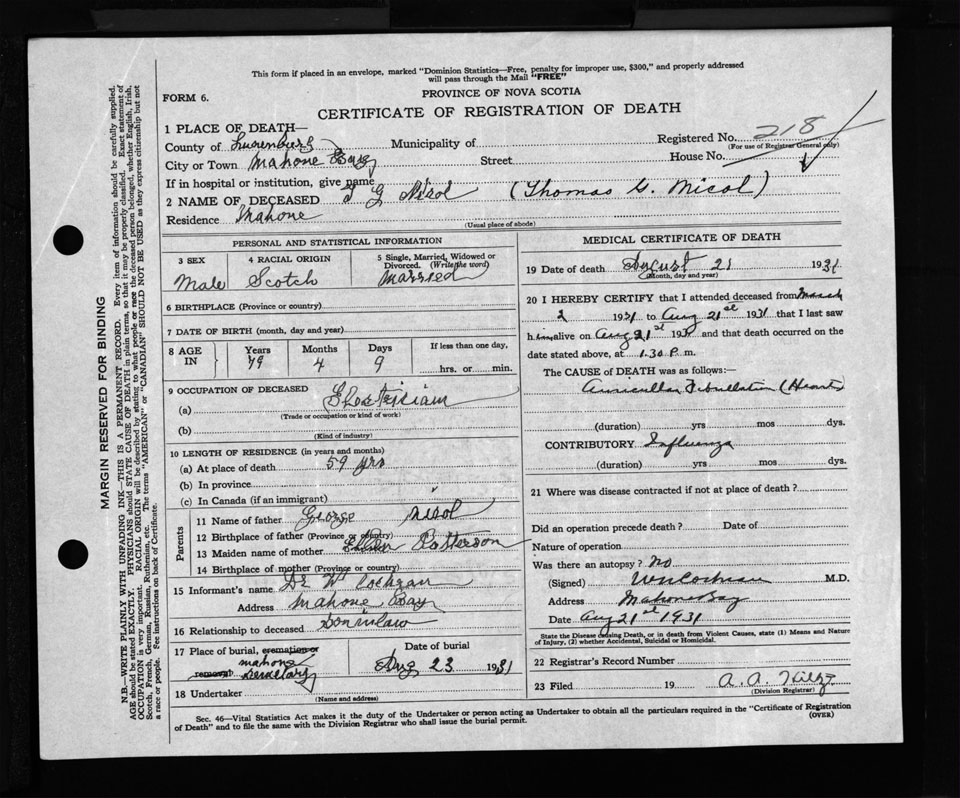 This form if placed in an envelope, marked "Dominion Statistics—Free, penalty for improper use, $300," and properly addressed
will pass through the Mail "FREE"
FORM 6.
PROVINCE OF NOVA SCOTIA
CERTIFICATE OF REGISTRATION OF DEATH
1 PLACE OF DEATH—
Registered No. 218
(For use of Registrar General only)
County of Lunenburg Municipality of
City or Town Mahone Bay Street House No.
If in hospital or institution, give name
2 NAME OF DECEASED T G Nicol (Thomas G. Nicol)
Residence Mahone
(Usual place of abode)
PERSONAL AND STATISTICAL INFORMATION
3 SEX 4 RACIAL ORIGIN 5 Single, Married, Widowed or Divorced. (Write the word)
Male Scotch Married
6 BIRTHPLACE (Province or country)
7 DATE OF BIRTH (month, day and year)
8 AGE IN Years Months Days If less than one day,
79 4 9 hrs. or min.
9 OCCUPATION OF DECEASED
(a)
(Trade or occupation or kind of work)
(b)
(Kind of industry)
10 LENGTH OF RESIDENCE (in years and months)
(a) At place of death 59 yrs
(b) In province
(c) In Canada (if an immigrant)
Parents
11 Name of father George Nicol
12 Birthplace of father (Province or country)
13 Maiden name of mother Patterson
14 Birthplace of mother (Province or country)
15 Informant's name Dr W Cochran
Address Mahone Bay
16 Relationship to deceased Son in law
17 Place of burial, cremation or removal Date of burial
Mahone Aug 23 1931
18 Undertaker
(Name and address)
MEDICAL CERTIFICATE OF DEATH
19 Date of death August 21 1931
(Month, day and year)
20 I HEREBY CERTIFY that I attended deceased from March
2 1931 to Aug 21st 1931 that I last saw
him alive on Aug 21st 1931 and that death occurred on
date stated above, at 1.30 P. m.
The CAUSE OF DEATH was as follows:
Auricular Fibrillation (Heart)
(duration) yrs mos dys.
CONTRIBUTORY Influenza
(duration) yrs mos dys.
21 Where was disease contracted if not at place of death?
Did an operation precede death? Date of
Nature of operation
Was there an autopsy? No
(Signed) W N Cochran M.D.
Address Mahone Bay
Date Aug 21st 1931
State the Disease Causing Death, or in death from Violent Causes, state (1) Means and Nature
of Injury, (2) whether Accidental, Suicidal or Homicidal.
22 Registrar's Record Number
23 Filed 19
(Division Registrar)
Sec. 46—Vital Statistics Act makes it the duty of the Undertaker or person acting as Undertaker to obtain all the particulars required in the "Certificate of Registration
of Death" and to file the same with the Division Registrar who shall issue the burial permit.
(OVER)
MARGIN RESERVED FOR BINDING
N.B.—WRITE PLAINLY WITH UNFADING INK—THIS IS A PERMANENT RECORD. Every item of information should be carefully supplied.
AGE should be stated EXACTLY. PHYSICIANS should STATE CAUSE OF DEATH in plain terms, so that it may be properly classified. Exact statement of
OCCUPATION is very important. RACIAL ORIGIN will be described by stating to what people or race the deceased person belonged, whether English, Irish,
Scotch, French, German, Russian, Ruthenian, etc. The terms "AMERICAN" or "CANADIAN" SHOULD NOT BE USED as they express citizenship but not
a race or people. See instructions on back of Certificate.